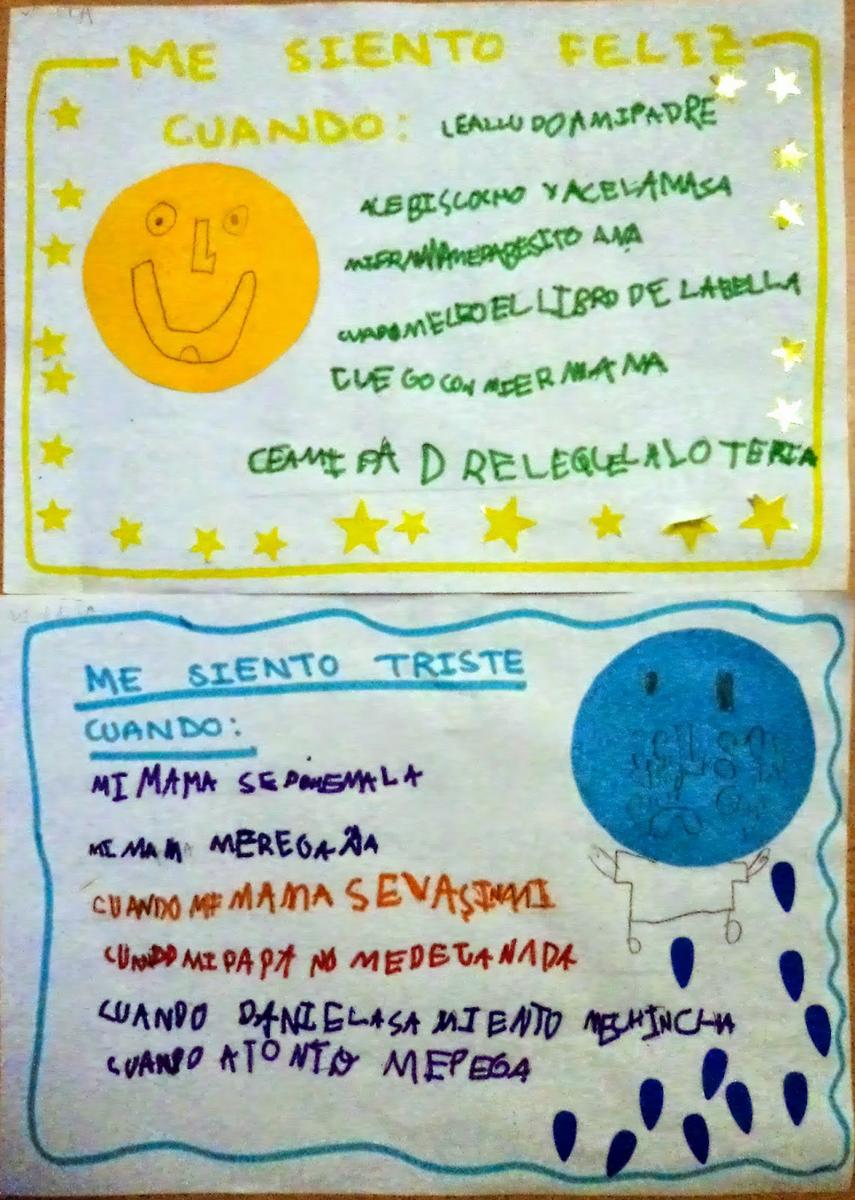 ME SIENTO FELIZ
CUANDO: LEALLUDOAMIPADRE
ACEBISCOCHO YACELAMASA
MIERMANAMEDABESITO
CUADOMELEOELLIBRO DE LABELLA
CUEGOCONMIERMANA
CEAMIPADRELEQUELALOTERIA
ME SIENTO TRISTE
CUANDO:
MI MAMA SEPONEMALA
MI MAMA MEREGAÑA
CUANDO MI MAMA SEVASINMI
CUANDO MI PAPA NO MEDEGANADA
CUANDO DANIELASAMIENTO MECHINCHA
CUANDO ATONTO MEPEGA